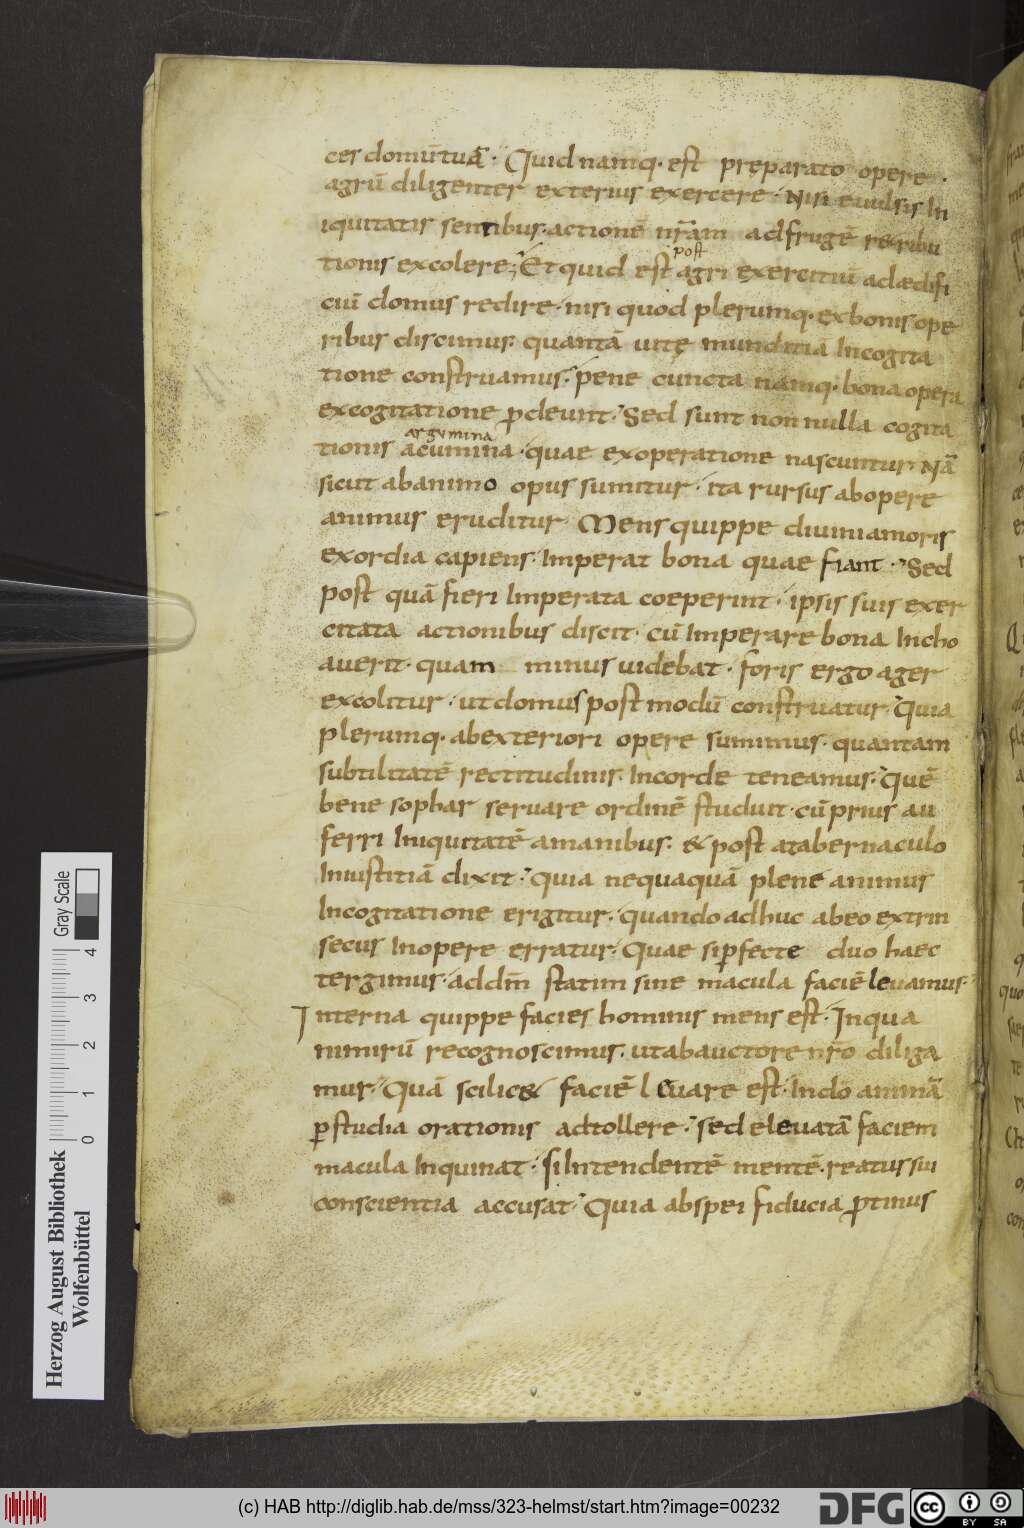 ces domūtuā · Quid namq· est pręparato opere ·
agrū diligenter exterius exercere · Nisi euulsis In
iquitatis sentibus · actionē nr̄am adfrugē retribu
tionis excolere ;· Et quid est agri exercitiū adædifi
post
ciū domus redire · nisi quod plerumq· exbonis ope
ribus discimus · quantā uitę munditiā Incogita
tione construamus · pene cuncta namq· bona opera
excogitatione ꝓdeunt · Sed sunt non nulla cogita
argumina
tionis acumina · quae exoperatione nascuntur · Nā
sicut abanimo opus sumitur · ita rursus abopere
animus eruditur · Mens quippe diuini amoris
exordia capiens · Imperat bona quae fiant · Sed
post quā fieri Imperata coeperint · ipsis suis exer
citata actionibus discit · cū Imperare bona Incho
auerit · quam minus uidebat · foris ergo ager
excolitur · ut domus post modū construatur · Quia
plerumq· abexteriori opere sumimus · quantam
subtilitatē rectitudinis · Incorde teneamus · Quē
bene sophar seruare ordinē studuit · cū prius au
ferri Iniquitatē amanibus · & post atabernaculo
Iniustitiā dixit · Quia nequaquā plene animus
Incogitatione erigitur · quando adhuc abeo extrin
secus Inopere erratur · Quae siꝑfecte duo haec
tergimus · addm̄ statim sine macula faciē leuamus ·
Interna quippe facies hominis mens est · Inqua
nimirū recognoscimus · utabauctore nr̄o diliga
mur · Quā scilic& faciē leuare est · Indō animā
ꝑstudia orationis adtollere · Sed eleuatā faciem
macula Inquinat · si Intendentē mentē · reatus sui
conscientia accusat · Quia abspei fiducia ꝓtinus
Herzog August Bibliothek
Wolfenbüttel
0 1 2 3 4
Gray Scale
(c) HAB http://diglib.hab.de/mss/323-helmst/start.htm?image=00232
DFG
cc BY SA